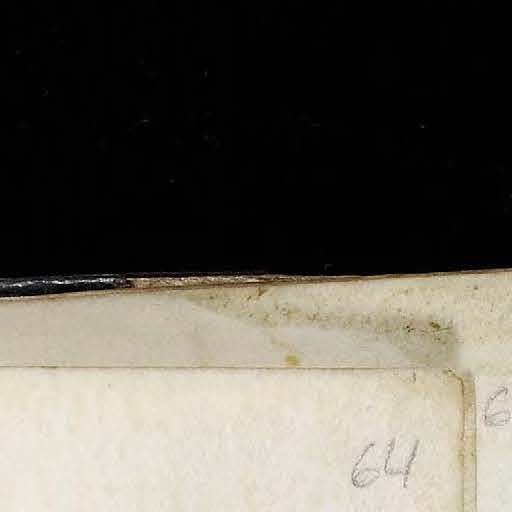 64
6